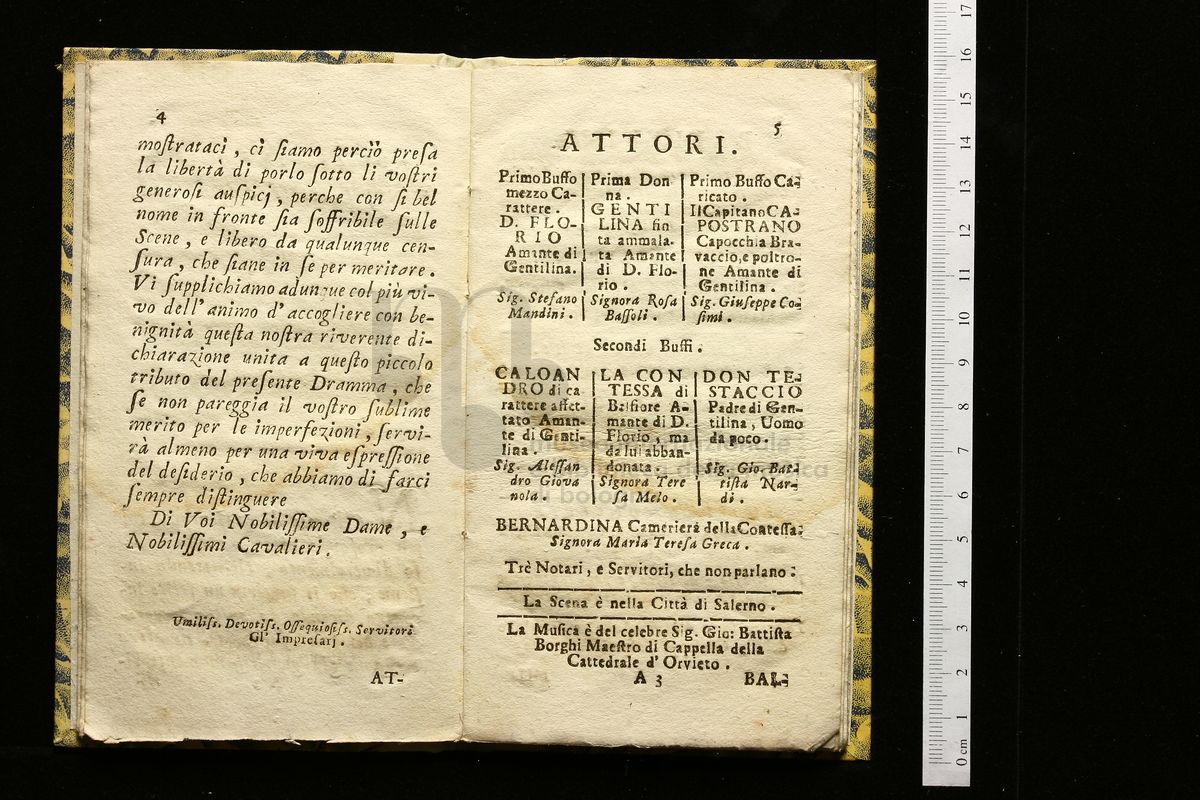 4
moſtrataci, ci ſiamo perciò preſa
la libertà di porlo ſotto li voſtri
generoſi auſpicj, perche con ſi bel
nome in fronte ſia ſoffribile ſulle
Scene, e libero da qualunque cen-
ſura, che ſiane in ſe per meritare.
Vi ſupplichiamo adunque col più vi-
vo dell' animo d' accogliere con be-
nignità queſta noſtra riverente di-
chiarazione unita a queſto piccolo
tributo del preſente Dramma, che
ſe non pareggia il voſtro ſublime
merito per le imperfezioni, ſervi-
rà almeno per una viva eſpreſſione
del deſiderio, che abbiamo di farci
ſempre diſtinguere
Di Voi Nobiliſſime Dame, e
Nobiliſſimi Cavalieri.
Umiliſs. Devotiſs. Oſſequioſiſs. Servitori
Gl' Impreſarj.
AT-
5
ATTORI.
Primo Buffo
mezzo Ca-
rattere.
D. FLO-
RIO
Amante di
Gentilina.
Sig. Stefano
Mandini.
Prima Don
na.
GENTI
LINA fin
ta ammala-
ta Amante
di D. Flo-
rio.
Signora Roſa
Baſſoli.
Primo Buffo Ca-
ricato.
Il Capitano CA-
POSTRANO
Capocchia Bra-
vaccio, e poltro-
ne Amante di
Gentilina.
Sig. Giuſeppe Co-
ſimi.
Secondi Buffi.
CALOAN
DRO di ca-
rattere affet-
tato Aman-
te di Genti-
lina.
Sig. Aleſſan
dro Giova
nola.
LA CON
TESSA di
Belfiore A-
mante di D.
Florio, ma
da lui abban-
donata.
Signora Tere
ſa Melo.
DON TE-
STACCIO
Padre di Gen-
tilina, Uomo
da poco.
Sig. Gio. Bat-
tiſta Nar-
di.
BERNARDINA Cameriera della Conteſſa.
Signora Maria Tereſa Greca.
Trè Notari, e Servitori, che non parlano.
La Scena è nella Città di Salerno.
La Muſica è del celebre Sig. Gio: Battiſta
Borghi Maeſtro di Cappella della
Cattedrale d' Orvieto.
A 3
BAL-
0 cm 1 2 3 4 5 6 7 8 9 10 11 12 13 14 15 16 17